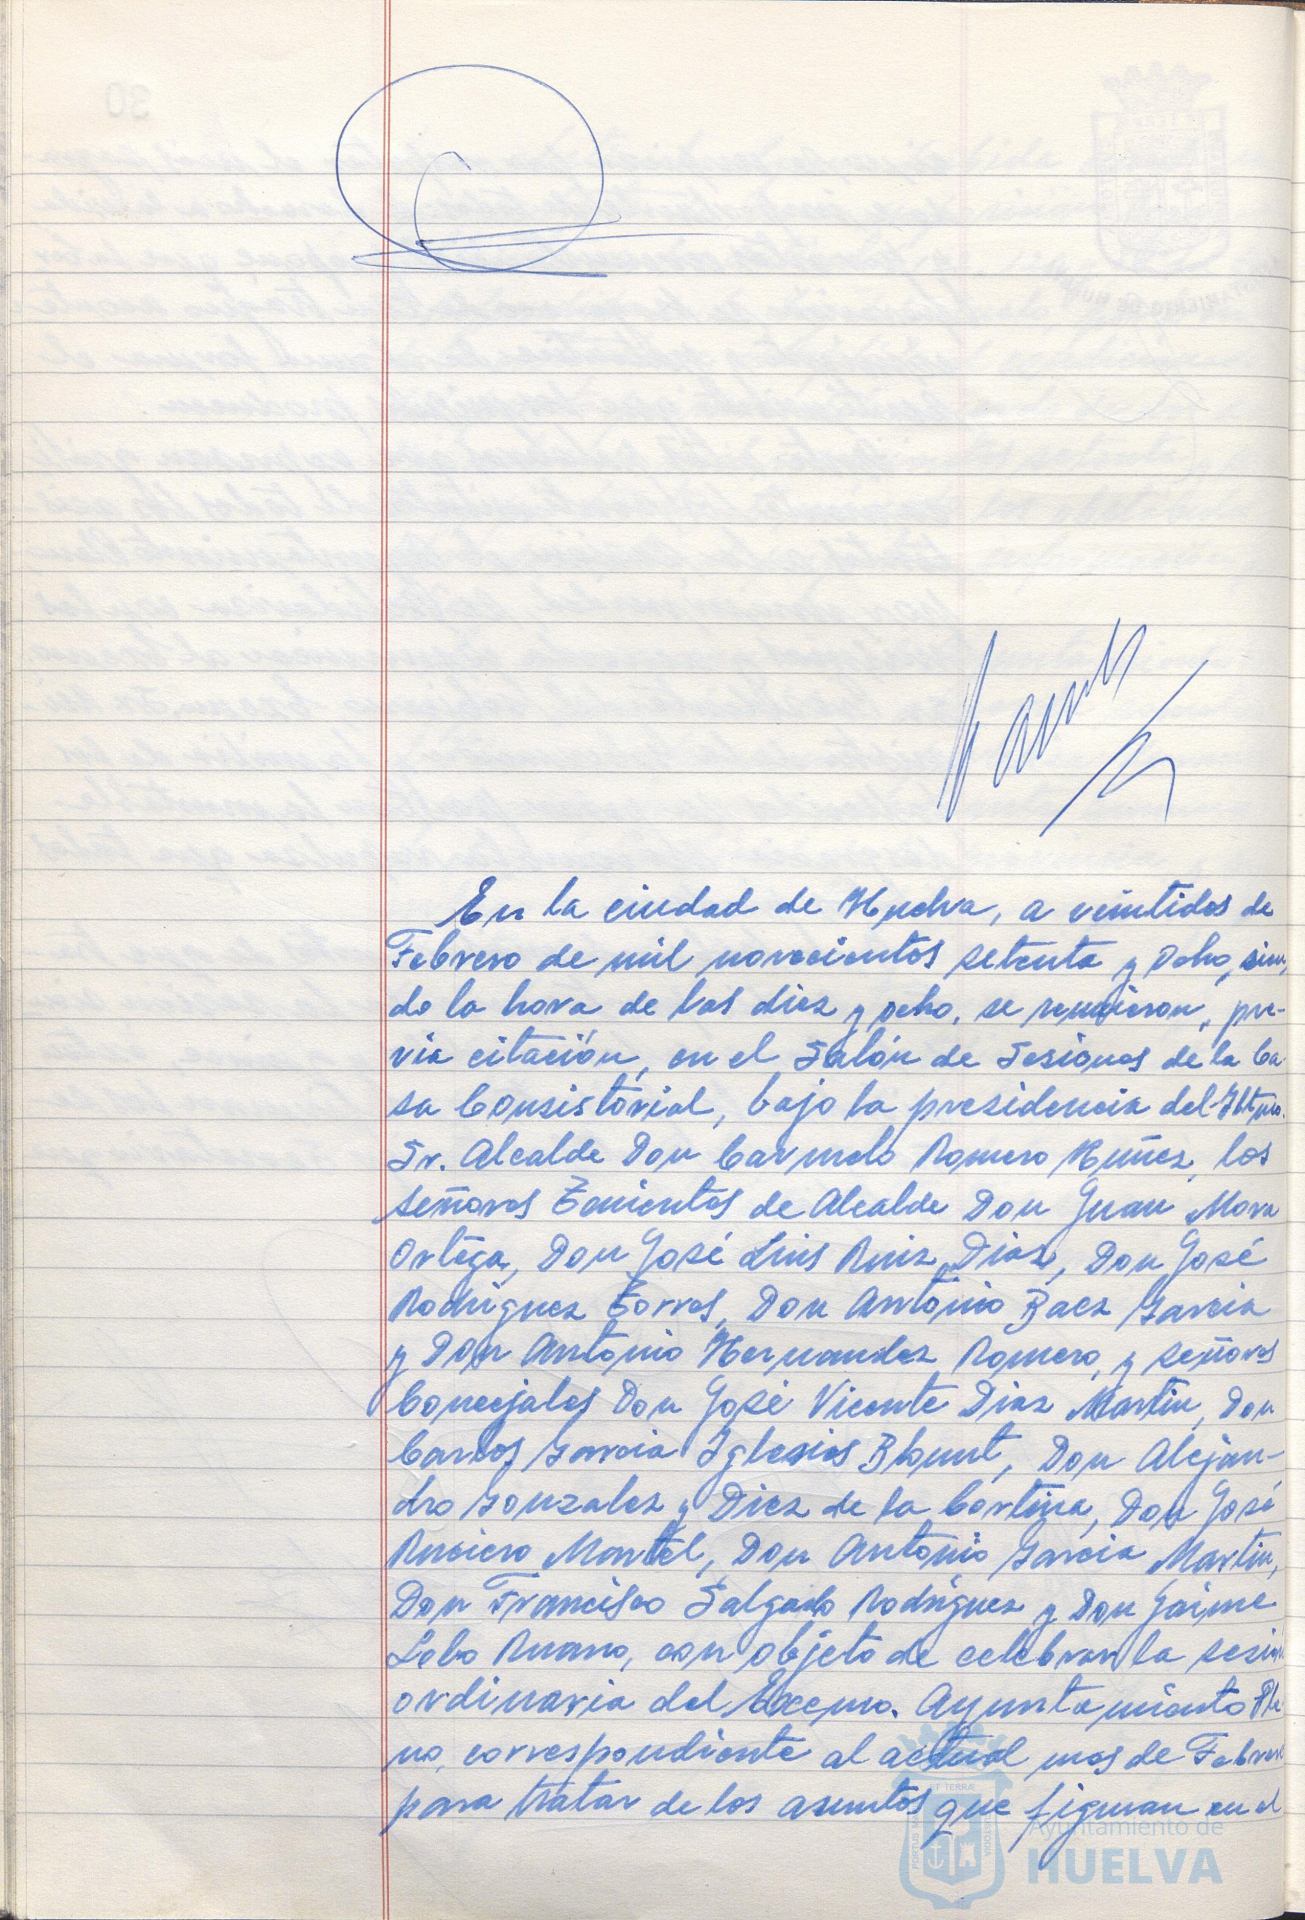 En la ciudad de Huelva, a veintidos de
Febrero de mil novecientos setenta y ocho, sien
do la hora de las diez y ocho, se reunieron, pre-
via citación, en el Salón de Sesiones de la Ca-
sa Consistorial, bajo la presidencia del Iltmo.
Sr. Alcalde Don Carmelo Romero Nuñez, los
señores Tenientes de Alcalde Don Juan Mora
Ortega, Don José Luis Ruiz Diaz, Don José
Rodriguez Torres, Don Antonio Baez Garcia
y Don Antonio Hernandez Romero, y señores
Concejales Don José Vicente Diaz Martin, Don
Carlos Garcia Iglesias Blount, Don Alejan-
dro Gonzalez y Diez de la Cortina, Don José
Ruciero Montel, Don Antonio Garcia Martin,
Don Francisco Salgado Rodriguez y Don Jaime
Lobo Ruano, con objeto de celebrar la sesión
ordinaria del Excmo. Ayuntamiento Ple
no, correspondiente al actual mes de Febrero
para tratar de los asuntos que figuran en el
ET TERRÆ
PORTUS MARIS
CUSTODIA
Ayuntamiento de
HUELVA